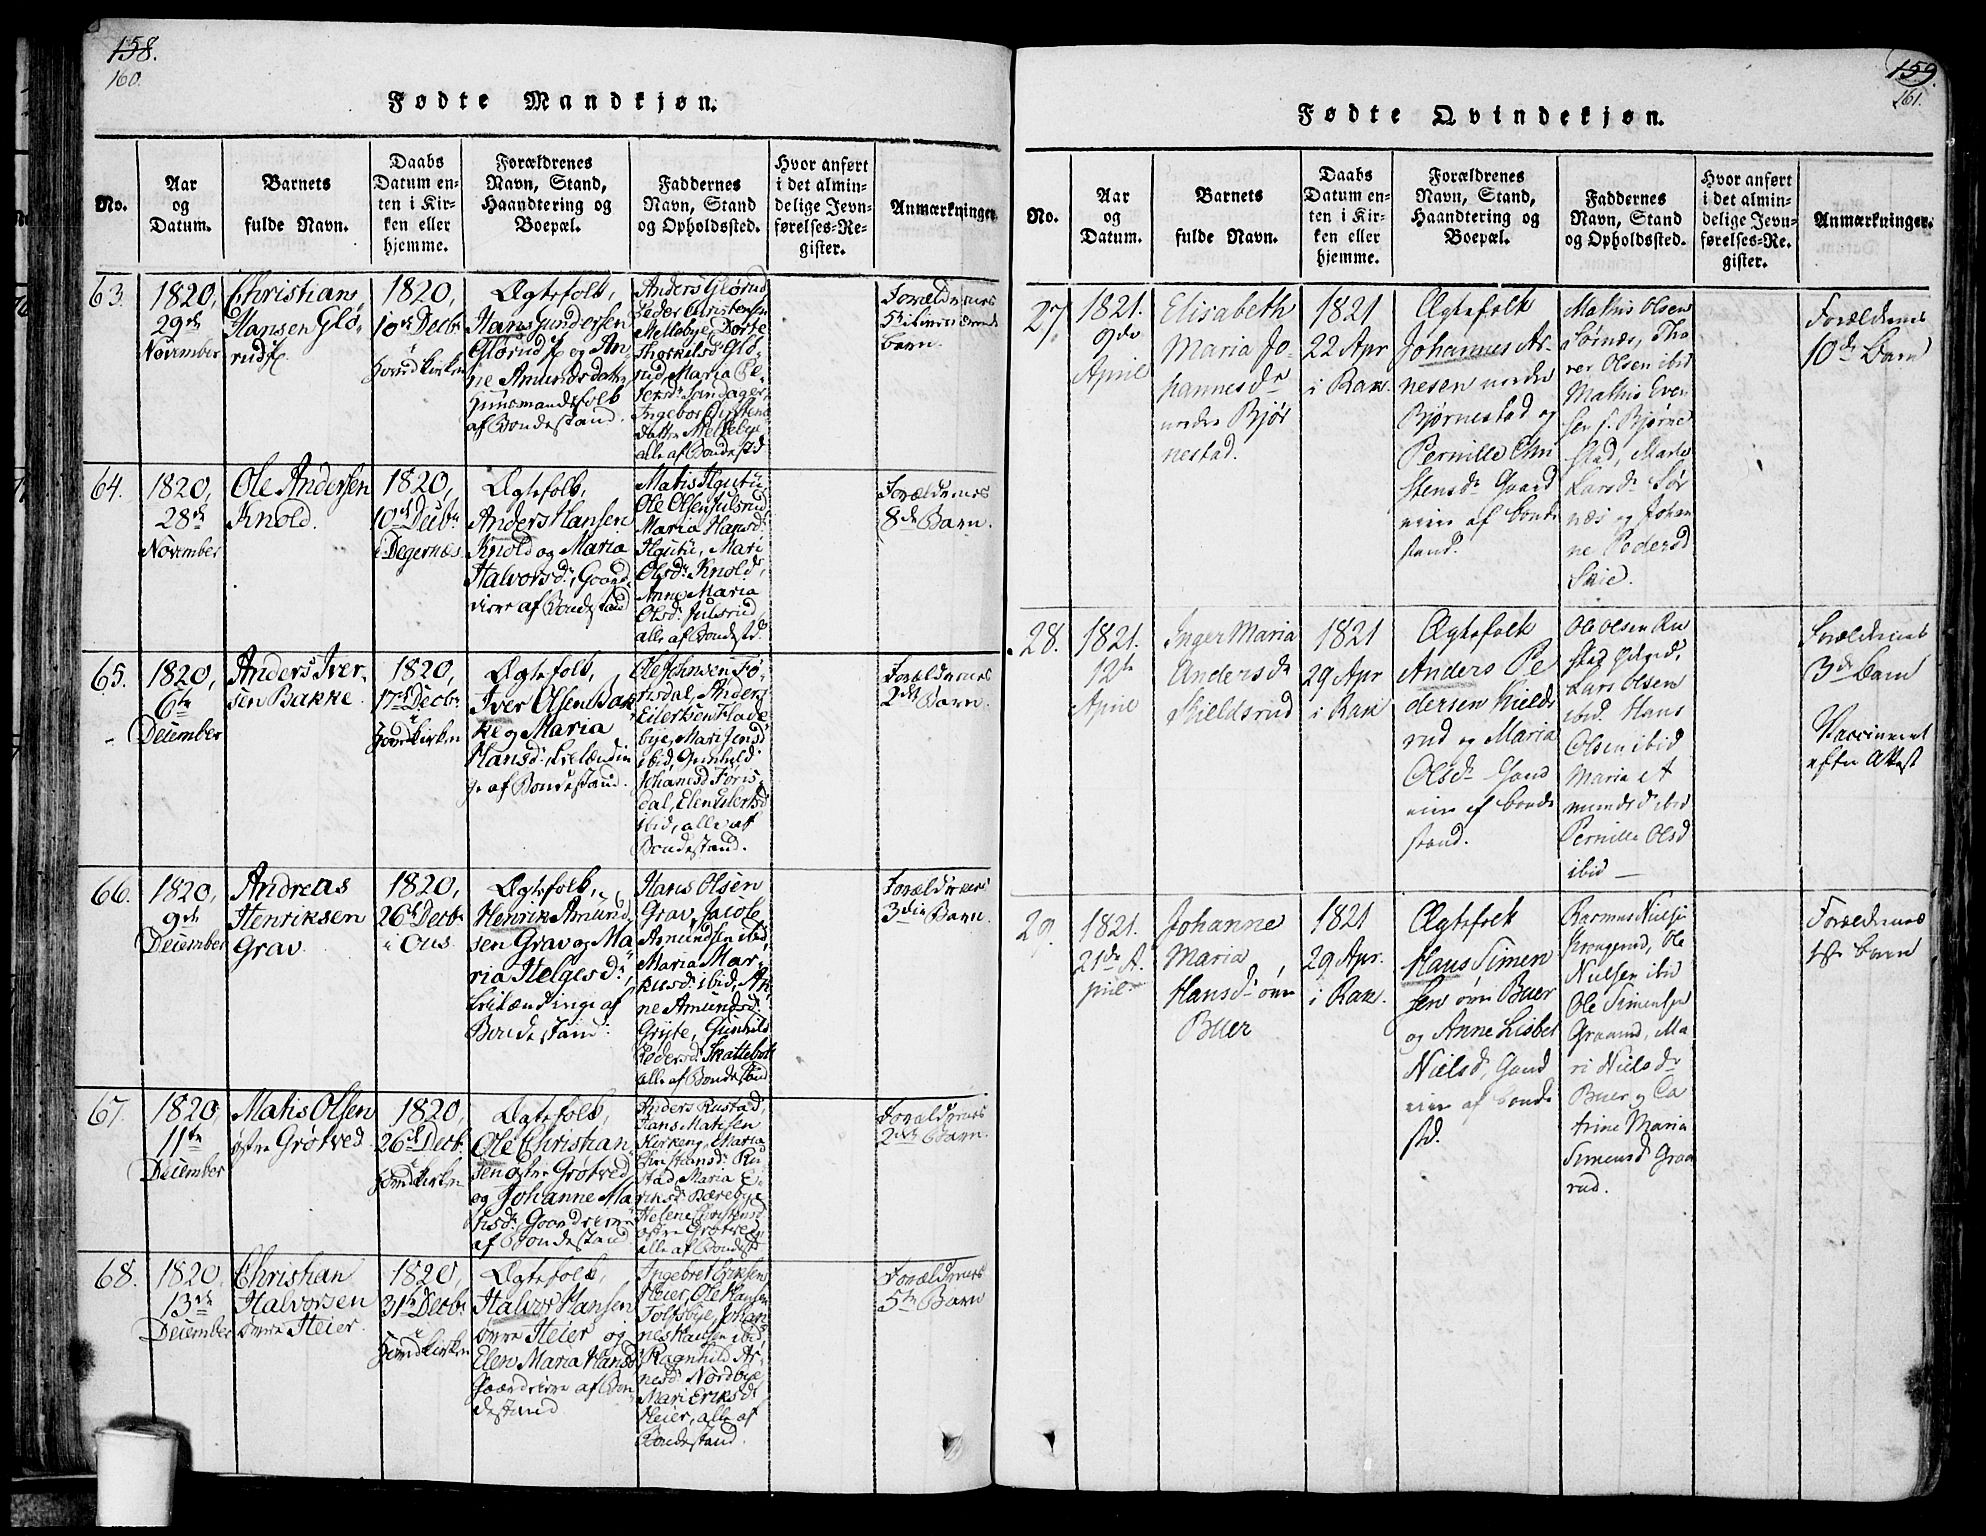 158.
160.
Fødte Mandkjøn.
No.
Aar
og
Datum.
Barnets
fulde Navn.
Daabs
Datum en-
ten i Kir-
ken eller
hjemme.
Forældrenes
Navn, Stand,
Haandtering og
Boepæl.
Faddernes
Navn, Stand
og Opholdssted.
Hvor anført
i det almin-
delige Jevn-
førelses-Re-
gister.
Anmærkninger.
63.
1820,
29de
November
Christian
Hansen Glø-
rud
1820,
10de Decbr
i
Hovedkirken
Ægtefolk,
Hans Gundersen
Glørud og An-
ne Amundsdatter
Huusmandsfolk
af Bondestand.
Anders Glørud
Peder Christensen
Mellebye, Dorte
Thorkilsd: Glø-
rud, Maria
Ingebor
datter Mellebye
alle af Bondestd
Forældrenes
5te
barn.
64.
1820,
28de
November
Ole Andersen
Knold.
1820,
10de Decbr
i Degernæs
Ægtefolk,
Anders Hansen
Knold og Maria
Halvorsd:, Gaard-
eiere af Bondestand
Matis
Ole Olsen Julsrud,
Maria Hansd:
Mari
Olsd: Knold,
Anne Maria
Olsd: Julsrud,
alle af Bondestd.
Forældrenes
8de Barn.
65.
1820,
6te
December
Anders Iver-
sen Bakke
1820,
17de Decbr
i
Hovedkirken
Ægtefolk,
Iver Olsen Bak-
ke og Maria
Hansd:
af Bondestand.
Ole Johnsen Fo-
risdal, Anders
Eilertsen Flade-
bye, Mari Jensd:
ibid, Gunhild
Johanesd Foris
dal, Elen Eilertsd
ibid, alle af
Bondestand.
Forældrenes
2det Barn.
66.
1820,
9de
December
Andreas
Henriksen
Grav.
1820,
26de Decbr
i Ous.
Ægtefolk,
Henrik Amund-
sen Grav og Ma-
ria Helgesd:,
af
Bondestand.
Hans Olsen
Grav, Jacob
Amundsen ibid,
Maria Mar-
kusd: ibid, An-
ne Amundsd:
Grijte, Gunhild
Pedersd: Skattebøl
alle af Bondestand
Forældrenes
3die Barn.
67.
1820,
11te
December
Matis Olsen
østre Grøtved
1820,
26de Decbr
i
Hovedkirken
Ægtefolk,
Ole Christian-
sen østre Grøtved
og Johanne Ma-
tisd: Gaardeiere
af Bondestand
Anders Rustad,
Hans Matisen
Kerkeng, Maria
Christiansd: Ru-
stad, Maria E-
riksd: Bærebye
Helene Christensd
østre Grøtved
alle af Bondestd
Forældrenes
2det Barn.
68.
1820,
13de
December
Christian
Halvorsen
Heier
1820,
31te Decbr
i
Hovedkirken
Ægtefolk,
Halvor Hansen
Heier og
Elen Maria Hansd
Gaardeiere af Bon-
destand
Ingebret Eriksen
Heier, Ole Hansen
Tolfsbye, Johan-
nes Hansen ibid,
Ragnhild Ar-
nesd: Nordbye
Mari Eriksd:
Heier, alle af
Bondestand.
Forældrenes
5te Barn
159.
161.
Fødte Qvindekjøn.
No.
Aar
og
Datum.
Barnets
fulde Navn.
Daabs
Datum en-
ten i Kir-
ken eller
hjemme.
Forældrenes
Navn, Stand,
Haandtering og
Boepæl.
Faddernes
Navn, Stand
og Opholdssted.
Hvor anført
i det almin-
delige Jevn-
førelses-Re-
gister.
Anmærkninger.
27
1821.
9de
April
Elisabeth
Maria Jo-
hannesdr
nordre Bjør
nestad.
1821
22 Apr
i Rak.
Ægtefolk
Johannes Ar-
nesen nordre
Bjørnestad og
Pernille Chri
stensdr Gaard
eiere af bonde
stand.
Mathis Olsen
Sørnæs, Tho
rer Olsen ibid
Mathis Even
sen Bjørne
stad, Marte
Larsdr Sør
næs og Johan
ne Pedersd
Skie.
Forældrenes
10de Barn
28.
1821.
12te
April
Inger Maria
Andersdr
Skieldsrud
1821
29 Apr
i Rak
Ægtefolk
Anders Pe
dersen Kields
rud og Maria
Olsdr Gaard
eiere af bonde
stand.
Ole Olsen Ru
stad
Lars Olsen
ibid. Hans
Olsen ibid
Maria A
mundsd ibid
Pernille Olsd
ibid —
Forældrenes
3de Barn
Vaccineret
efter Attest
29.
1821.
21de A-
pril.
Johanne
Maria
Hansdr øvre
Buer
1821
29 Apr.
i Rak.
Ægtefolk
Hans Simen
sen øvre Buer
og Anne Lisbet
Nielsdr, Gaard
eiere af bonde
std.
Rasmus Nielsen
Ole
Nielsen ibid
Ole Simensen
Graarud, Ma
ri Nielsdr
Buer og Ca
trine Maria
Simensd Graa
rud.
Forældrenes
1ste barn